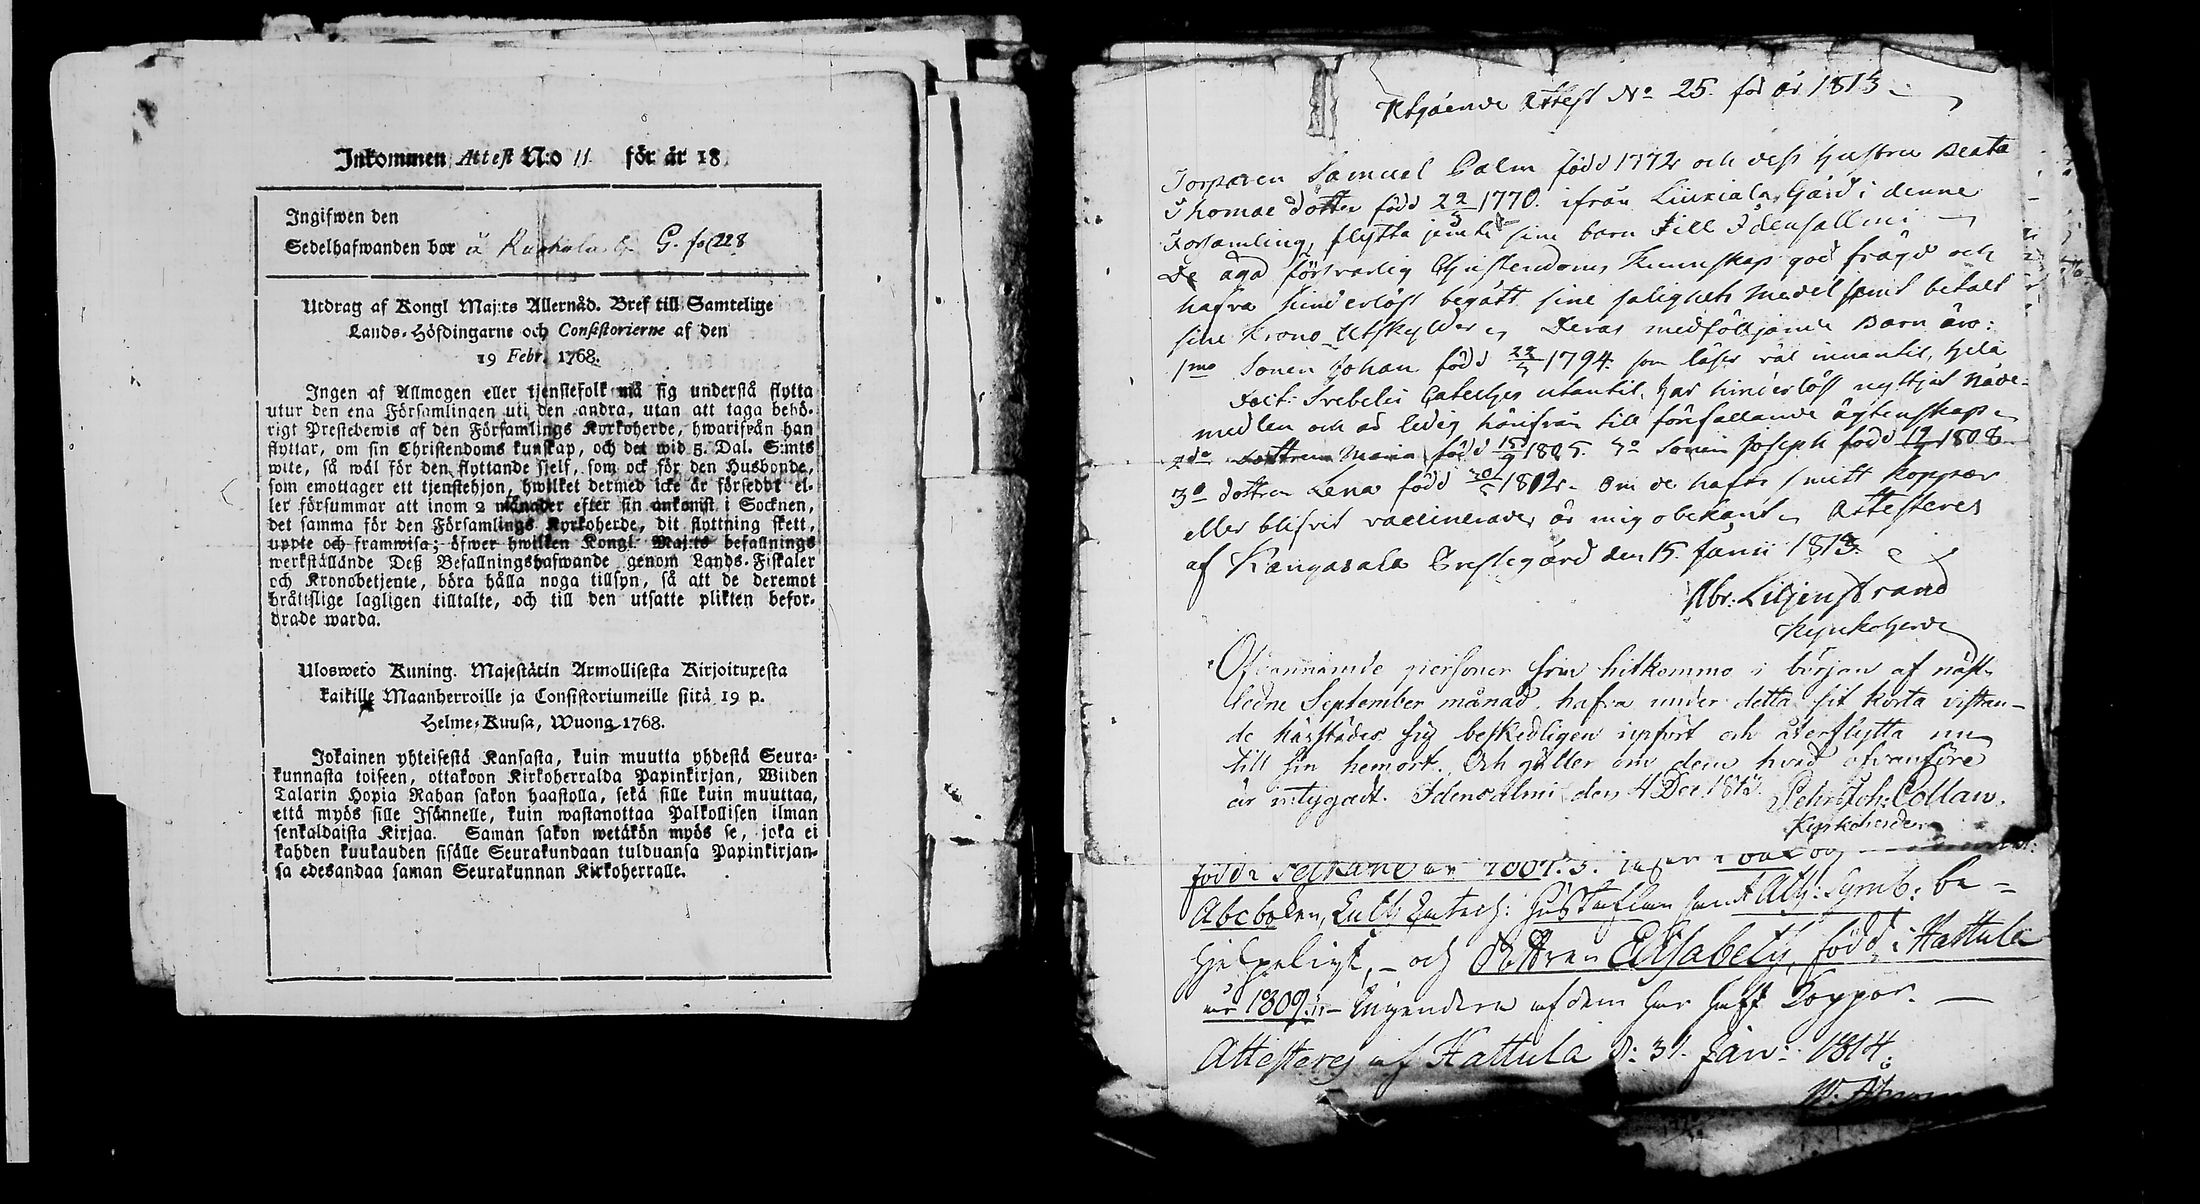 Inkommen Attest N:o 11. för år 18
Ingifwen den
Sedelhafwanden bor å G. fol 228
Utdrag af Kongl Maj:ts Allernåd. Bref till Samtelige
Lands-Höfdingarne och Consistorierne af den
19 Febr. 1768.
Ingen af Allmogen eller tjenstefolk må sig understå flytta
utur den ena Församlingen uti den andra, utan att taga behö-
rigt Prestebewis af den Församlings Kyrkoherde, hwarifrån han
flyttar, om sin Christendoms kunskap, och det wid 5. Dal. S:mts
wite, så wäl för den flyttande sjelf, som ock för den Husbonde,
som emottager ett tjenstehjon, hwilket dermed icke är försedt el-
ler försummar att inom 2 månader efter sin ankomst i Socknen,
det samma för den Församlings Kyrkoherde, dit flyttning skett,
uppte och framwisa; öfwer hwilken Kongl Maj:ts befallnings
werkställande Deß Befallningshafwande genom Lands-Fiskaler
och Kronobetjente, böra hålla noga tillsyn, så att de deremot
bråttslige lagligen tilltalte, och till den utsatte plikten befor-
drade warda.
Ulosweto Kuning. Majestätin Armollisesta Kirjoituxesta
kaikille Maanherroille ja Consistoriumeille siitä 19 p.
Helme-Kuusa, Wuong 1768.
Jokainen yhteisestä Kansasta, kuin muutta yhdestä Seura-
kunnasta toiseen, ottakoon Kirkoherralda Papinkirjan, Wiiden
Talarin Hopia Rahan sakon haastolla, sekä sille kuin muuttaa,
että myös sille Isännelle, kuin wastanottaa Palkollisen ilman
senkaldaista Kirjaa. Saman sakon wetäkön myös se, joka ei
kahden kuukauden sisälle Seurakundaan tulduansa Papinkirjan-
sa edesandaa saman Seurakunnan Kirkoherralle.
Utgående Attest No 25. för år 1813
Torparen Samuel Palm född 1772 och dess hustru Beata
Thomae dotter född 22/3 1770. ifrån Liuxiala Gård i denne
Församling, flytta jemte sine barn till Idensallmi
De äga försvarlig Christendoms Kunnskap god frägd och
hafva hinderlöst begått sine salighets medel samt betalt
sine Krono Utskylder. Deras medföljande Barn äro:
1mo Sonen Johan född 1794. som läser väl innantil, hela
Svebelii Cateches utantil, har hinderlöst nyttjat Nåde-
medlen och är ledig härifrån till förefallande ägtenskap
2do Dottren Maria född 1805. 3o Sonen Joseph född 1808
3o dottren Lena född 1812. Om de haft smitt koppor
eller blifvit vaccinerade, är mig obekant. Attesteres
af Kangasala Prestegård den 15. Junii 1813.
Abr: Liljenstrand
Kyrkoherde
Ofvannämde personer som hitkommo i början af näst-
ledne September månad, hafva under detta sit korta vistan-
de härstädes sig beskedligen upfört och återflytta nu
till sin hemort. Och gäller om dem hvad ofvanföre
är intygadt. Idensalmi den 4 Dec 1813. Pehr Joh: Collan.
Kyrkoherde
Abcboken, Luth Catech: samt Ath: Symb: be-
hjelpeligt, - och dottren Elisabeth, född i Hattula
år 1809: - Ingendera af dem har haft Koppor. -
Attesteres af Hattula d: 31. Jan: 1814.